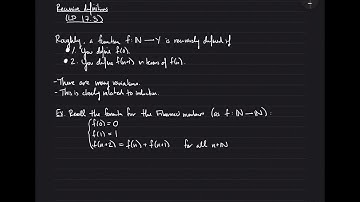 Recursive definitions
(LP 17.3)
Roughly, a function f: ℕ → Y is recursively defined if
• 1. You define f(0).
• 2. You define f(n+1) in terms of f(n).
- There are many variations.
- This is closely related to induction.
Ex. Recall the formula for the Fibonacci numbers (as f: ℕ → ℕ):
f(0) = 0
f(1) = 1
f(n+2) = f(n) + f(n+1) for all n∈ℕ